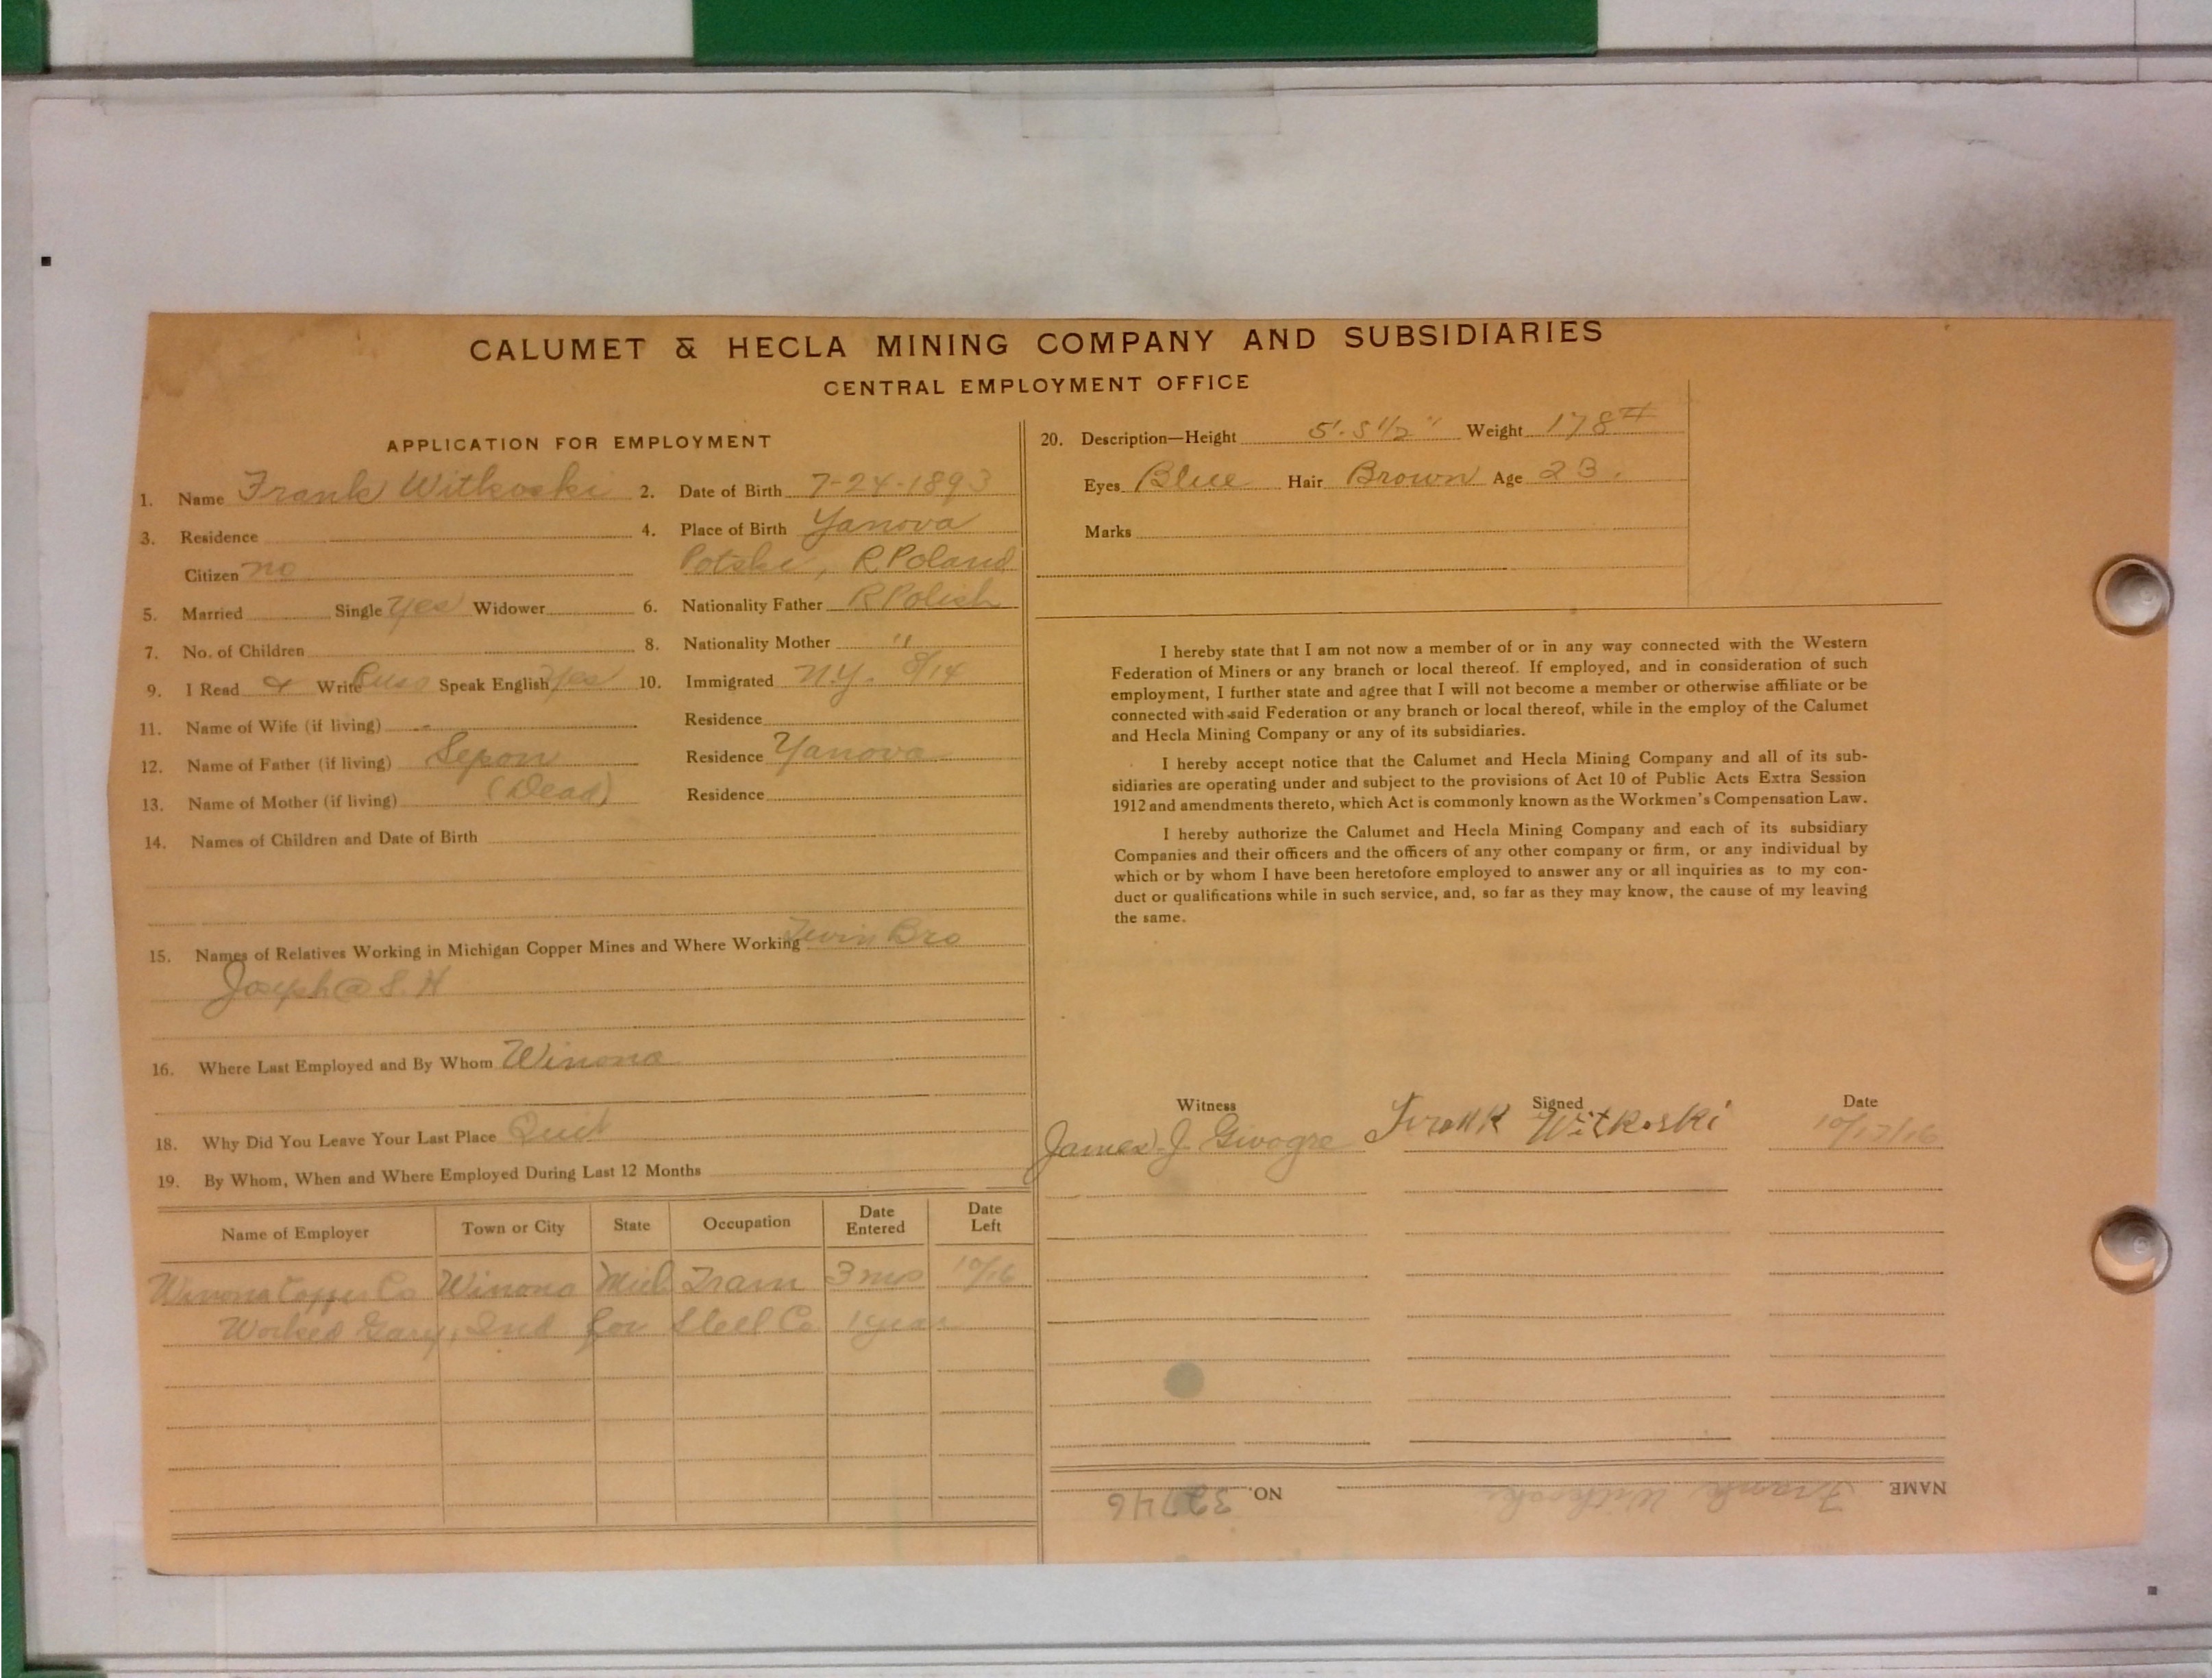 CALUMET & HECLA MINING COMPANY AND SUBSIDIARIES
CENTRAL EMPLOYMENT OFFICE
APPLICATION FOR EMPLOYMENT
1. Name Frank Witkoski 2. Date of Birth 7-24-1893
3. Residence 4. Place of Birth Yanova
Citizen no Potski, R Poland
5. Married Single Yes Widower 6. Nationality Father R Polish
7. No. of Children 8. Nationality Mother "
9. I Read & Write Russ Speak English Yes 10. Immigrated N.Y. 8/14
11. Name of Wife (if living) - Residence
12. Name of Father (if living) Sepon Residence Yanova
13. Name of Mother (if living) (Dead) Residence
14. Names of Children and Date of Birth
15. Names of Relatives Working in Michigan Copper Mines and Where Working Twin Bro
Joseph @ S. H
16. Where Last Employed and By Whom Winona
18. Why Did You Leave Your Last Place Quit
19. By Whom, When and Where Employed During Last 12 Months
Name of Employer Town or City State Occupation Date Entered Date Left
Winona Copper Co Winona Mich Tram 3 mos 10/16
Worked Gary, Ind for Steel Co 1 year
20. Description—Height 5'. 5 1/2" Weight 178 #
Eyes Blue Hair Brown Age 23.
Marks
I hereby state that I am not now a member of or in any way connected with the Western
Federation of Miners or any branch or local thereof. If employed, and in consideration of such
employment, I further state and agree that I will not become a member or otherwise affiliate or be
connected with said Federation or any branch or local thereof, while in the employ of the Calumet
and Hecla Mining Company or any of its subsidiaries.
I hereby accept notice that the Calumet and Hecla Mining Company and all of its sub-
sidiaries are operating under and subject to the provisions of Act 10 of Public Acts Extra Session
1912 and amendments thereto, which Act is commonly known as the Workmen's Compensation Law.
I hereby authorize the Calumet and Hecla Mining Company and each of its subsidiary
Companies and their officers and the officers of any other company or firm, or any individual by
which or by whom I have been heretofore employed to answer any or all inquiries as to my con-
duct or qualifications while in such service, and, so far as they may know, the cause of my leaving
the same.
Witness Signed Date
James J. Givogre Frank Witkoski 10/17/16
NAME Frank Witkoski NO. 32746